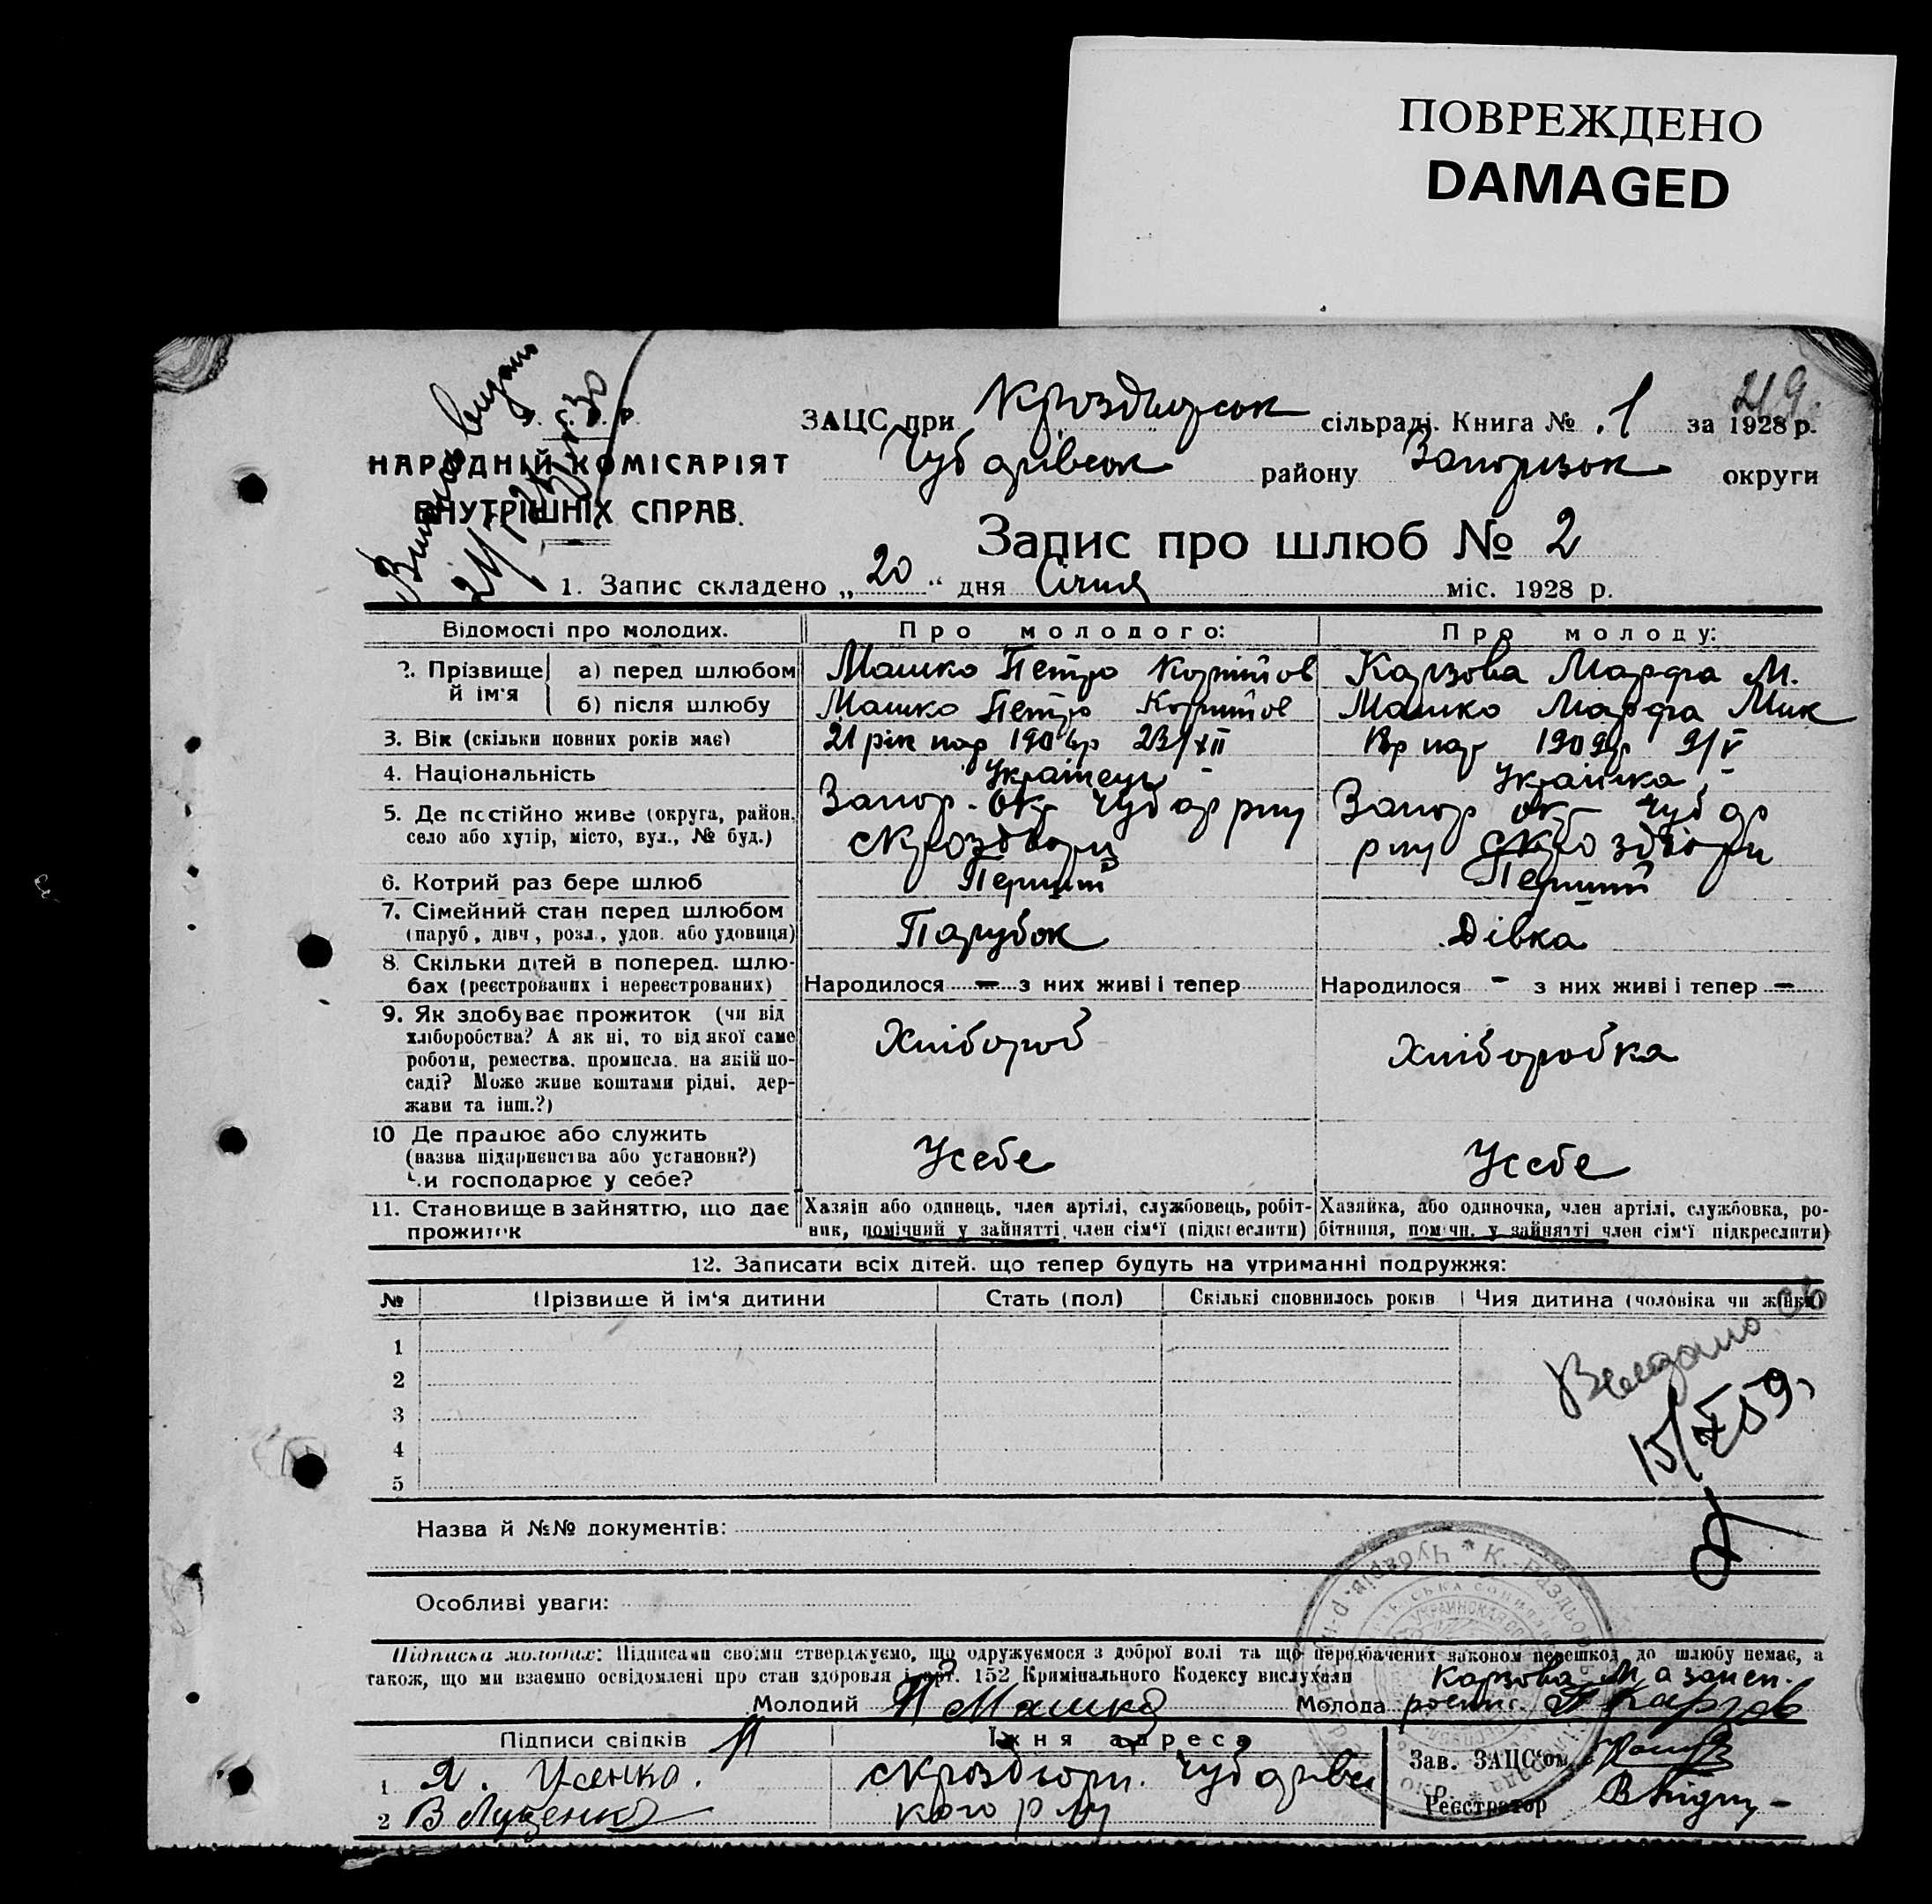 ПОВРЕЖДЕНО
DAMAGED
219
НАРОДНІЙ КОМІСАРІЯТ
ВНУТРІШНІХ СПРАВ.
ЗАЦС при сільраді. Книга № 1 за 1928 р.
Чубарівськ району Запорізьк округи
Запис про шлюб № 2
1. Запис складено „ 20 “ дня Січня міс. 1928 р.
Відомості про молодих. Про молодого: Про молоду:
2. Прізвище й ім'я а) перед шлюбом Машко Петро Карзова Марфа М.
б) після шлюбу Машко Петро Машко Марфа Мик
3. Вік (скільки повних років має) 21 рік нар 23/XII нар 1909р 9/V
4. Національність Українець Українка
5. Де постійно живе (округа, район, Запор. окр Чубар р-ну Запор окр Чубар
село або хутір, місто, вул., № буд.) с Кроздори р-ну с Кроздори
6. Котрий раз бере шлюб Перший Перший
7. Сімейний стан перед шлюбом Парубок Дівка
(паруб., дівч., розл., удов. або удовиця)
8. Скільки дітей в поперед. шлю-
бах (реєстрованих і нереєстрованих) Народилося — з них живі і тепер Народилося - з них живі і тепер —
9. Як здобуває прожиток (чи від
хліборобства? А як ні, то від якої саме Хлібороб Хліборобка
роботи, ремества, промисла, на якій по-
саді? Може живе коштами рідні, дер-
жави та інш.?)
10 Де працює або служить
(назва підприємства або установи?) Усебе Усебе
Чи господарює у себе?
11. Становище в зайняттю, що дає Хазяїн або одинець, член артілі, службовець, робіт- Хазяйка, або одиночка, член артілі, службовка, ро-
прожиток ник, помічний у зайнятті член сім'ї (підкреслити) бітниця, помічн. у зайнятті член сім'ї підкреслити)
12. Записати всіх дітей, що тепер будуть на утриманні подружжя:
№ Прізвише й ім'я дитини Стать (пол) Скількі сповнилось років Чия дитина (чоловіка чи жінки)
1
2
3
4
5
Назва й №№ документів:
Особливі уваги:
Підписка молодих: Підписами своїми стверджуємо, що одружуємося з доброї волі та що передбачених законом перешкод до шлюбу немає, а
також, що ми взаємно освідомлені про стан здоровля і арт. 152 Кримінального Кодексу вислухали Карзова М а за неп.
Молодий П Машко Молода роспис. Карзов
Підписи свідків Їхня адреса Зав. ЗАЦС'ом
1 Я. Усенко. с Кроздори. Чубарівсь
2 В Луценко кого р-ну Реєстратор